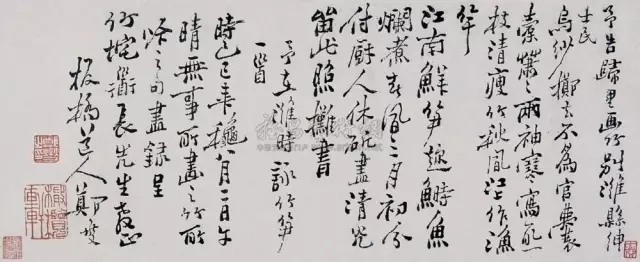 予告歸里畫竹別濰縣紳
士民
烏紗擲去不為官囊
橐蕭〻兩袖寒寫取一
枝清瘦竹秋風江上作漁
竿
江南鮮筍趁鰣魚
爛煮春風三月初分
付廚人休斫盡清光
留此照攤書
予在濰時詠竹筍
一首
時 穐八月二日午
晴無事所畫之竹所
詠之句盡錄呈
長先生教正
板橋道人鄭燮